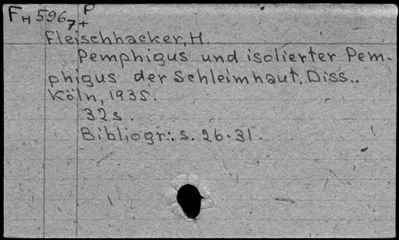 FH 5967+ P
Fleischhacker, H.
Pemphigus und isolierter Pem-
phigus der Schleimhaut. Diss..
Köln, 1935.
32s.
Bibliogr.: s. 26-31.